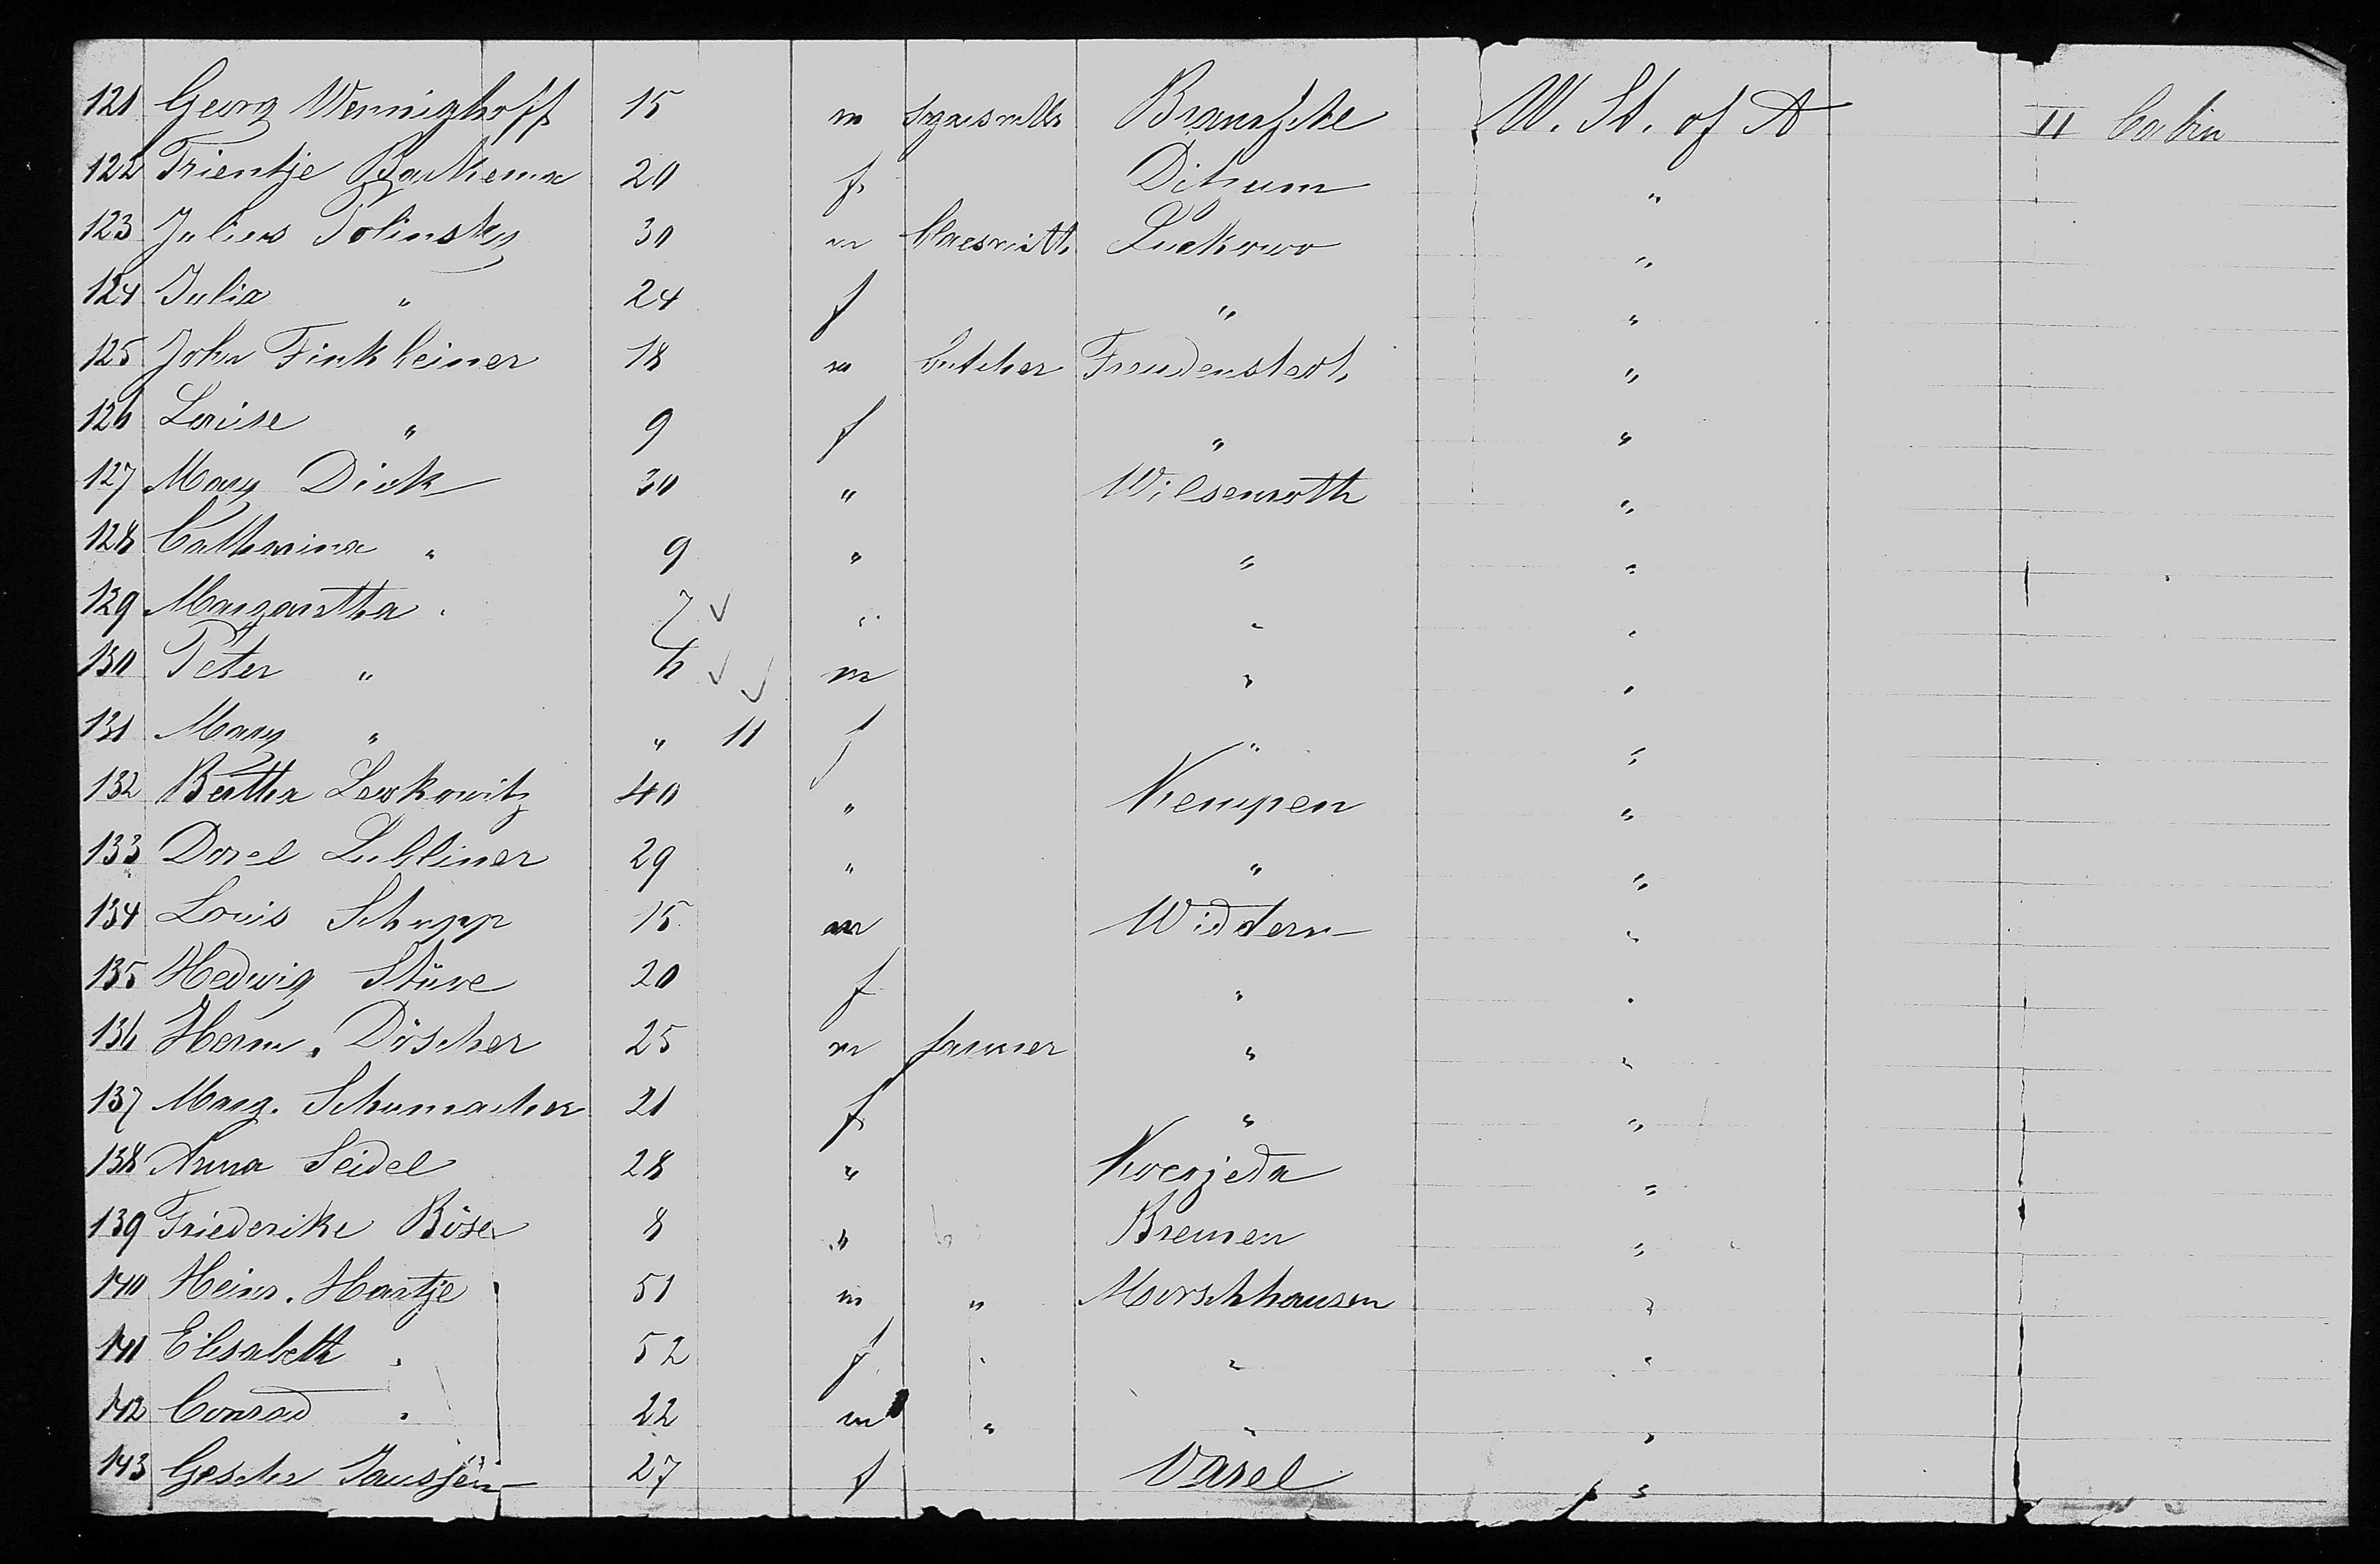 121 Georg Werninghoff 15 m Braunsche U. St. of A II Cabin
122 Trientje Bakkema 20 f Ditzum "
123 Julius Polinsky 30 m blacsmith Luckowo "
124 Julia " 24 f " "
125 John Finkbeiner 18 m butcher Freudenstadt "
126 Louise " 9 f " "
127 Mary Dick 30 " Wilsenroth "
128 Catharina " 9 " " "
129 Margaretha " 7 " " "
130 Peter " m " "
131 Mary " " 11 f " "
132 Bertha Lewkowitz 40 " Kempen "
133 Dorel Lubliner 29 " " "
134 Louis Schupp 15 m Widdern "
135 Hedwig Stüve 20 f " "
136 Herm. Döscher 25 m farmer " "
137 Marg. Schumacher 21 f " "
138 Anna Seidel 28 " "
139 Friederike Böse 8 " Bremen "
140 Heinr. Hartje 51 m " Morschhausen "
141 Elisabeth " 52 f " " "
142 Conrad " 22 m " " "
143 Gesche Janssen 27 f Varel "